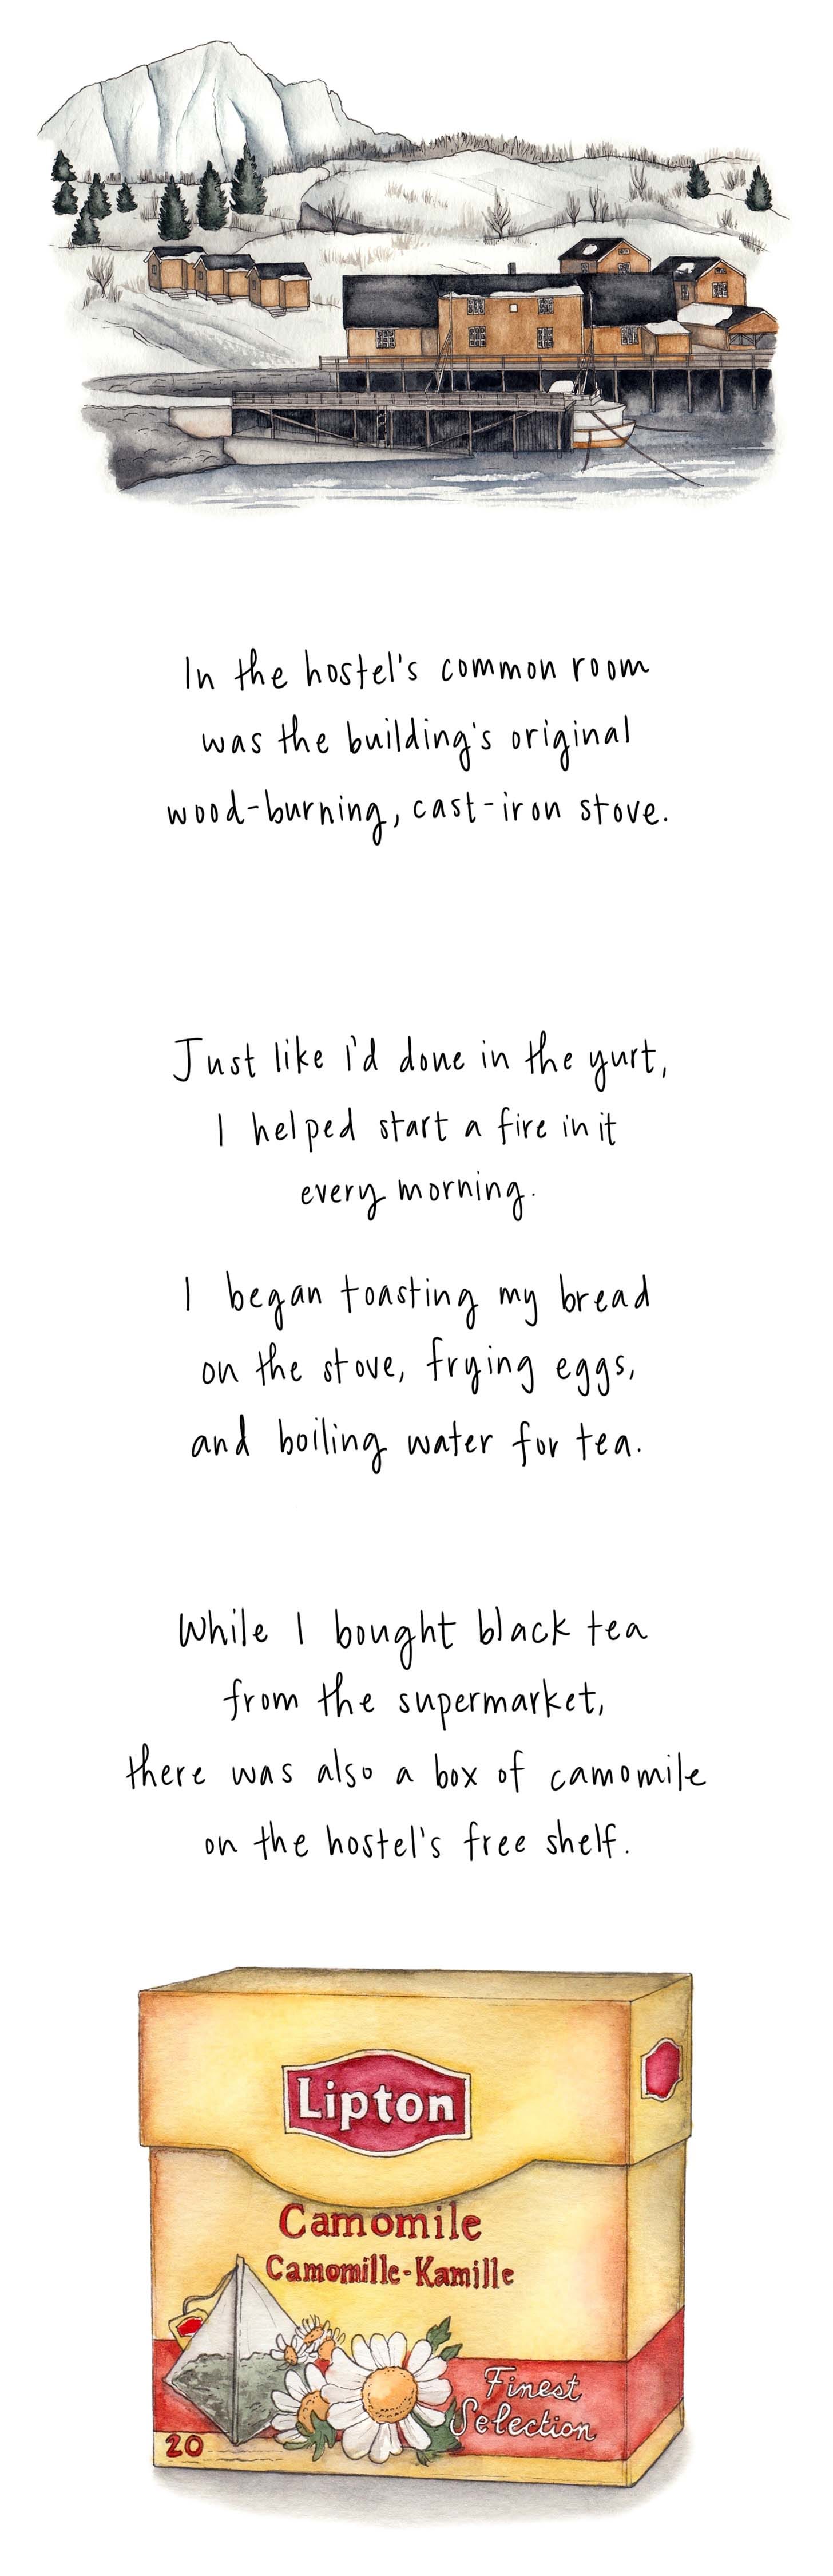 In the hostel's common room
was the building's original
wood-burning, cast-iron stove.
Just like I'd done in the yurt,
I helped start a fire in it
every morning.
I began toasting my bread
on the stove, frying eggs,
and boiling water for tea.
While I bought black tea
from the supermarket,
there was also a box of camomile
on the hostel's free shelf.
Lipton
Camomile
Camomille-Kamille
Finest
Selection
20